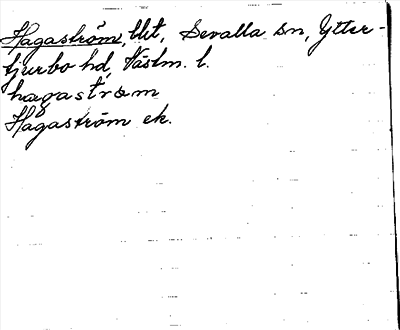 Hagaström, lht, Sevalla sn, Ytter-
tjurbo hd, Västm. l.
hagaström
Hagaström ek.